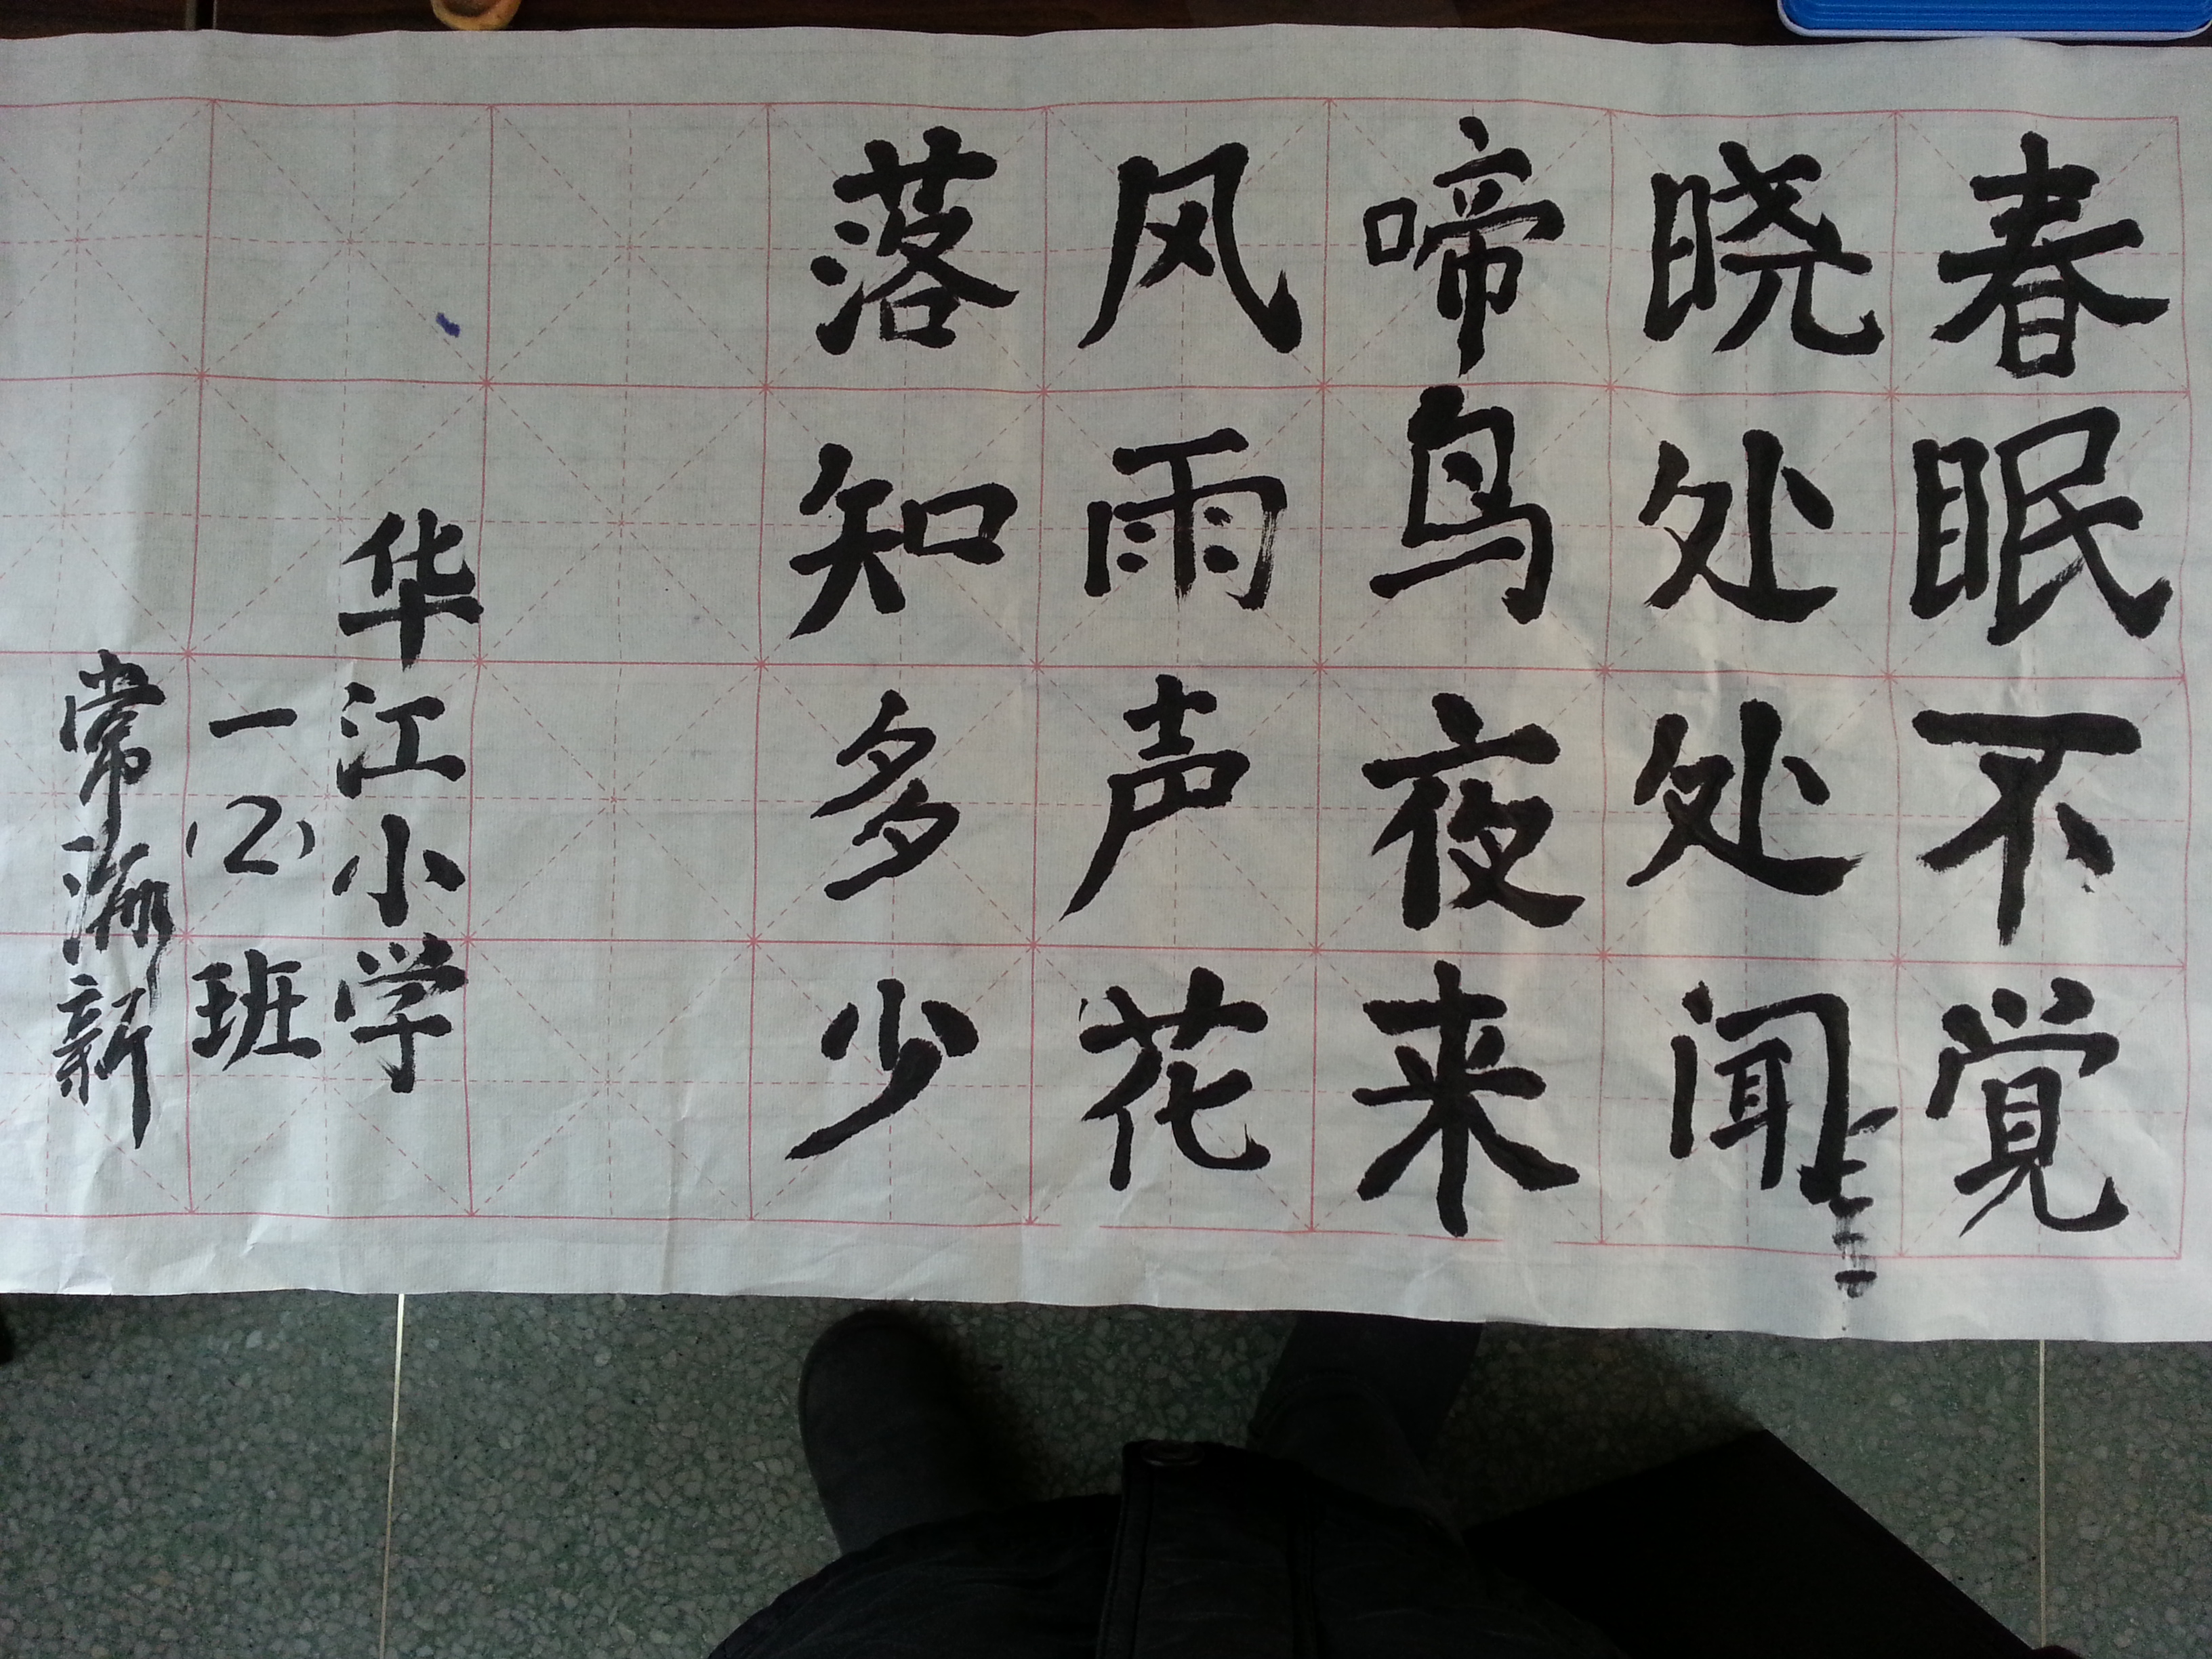 春眠不觉
晓处处闻
啼鸟夜来
风雨声花
落知多少
华江小学
一(2)班
常海新